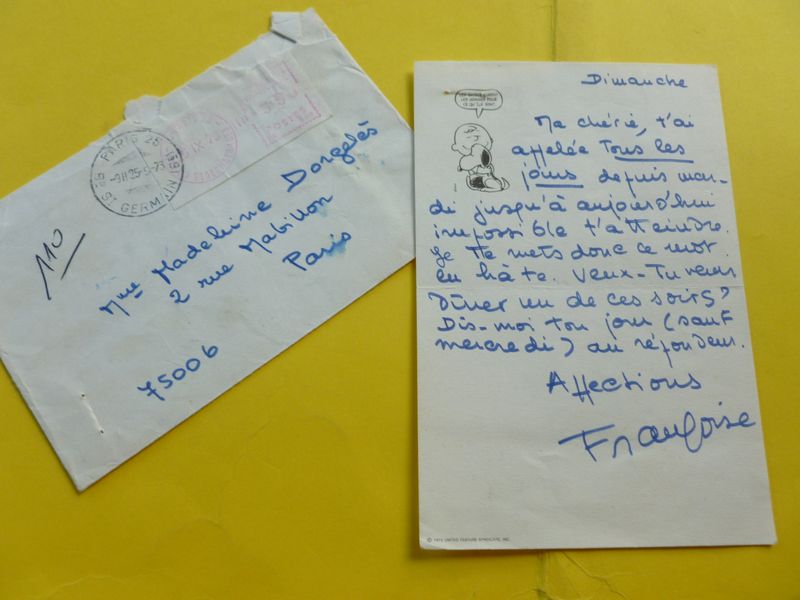 PARIS 25
ST GERMAIN
POSTES
110
Mme Madeleine Dorgelès
2 rue Mabillon
Paris
75006
Dimanche
Ma chérie, t'ai
appelée Tous les
jours depuis mar-
di jusqu'à aujourd'hui
impossible t'atteindre.
Je te mets donc ce mot
en hâte. Veux-Tu venir
Dîner un de ces soirs?
Dis-moi ton jour (sauf
mercredi) au répondeur.
Affections
Françoise
UNITED FEATURE SYNDICATE, INC.